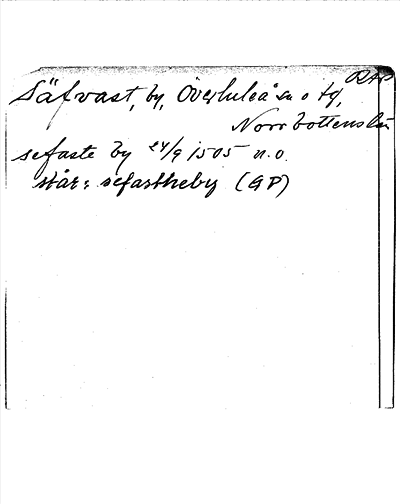 RAP
Säfvast, by, Överluleå sn o tg,
Norrbottens län
sefaste by 24/9 1505 n.o.
står: sefastheby (GP)